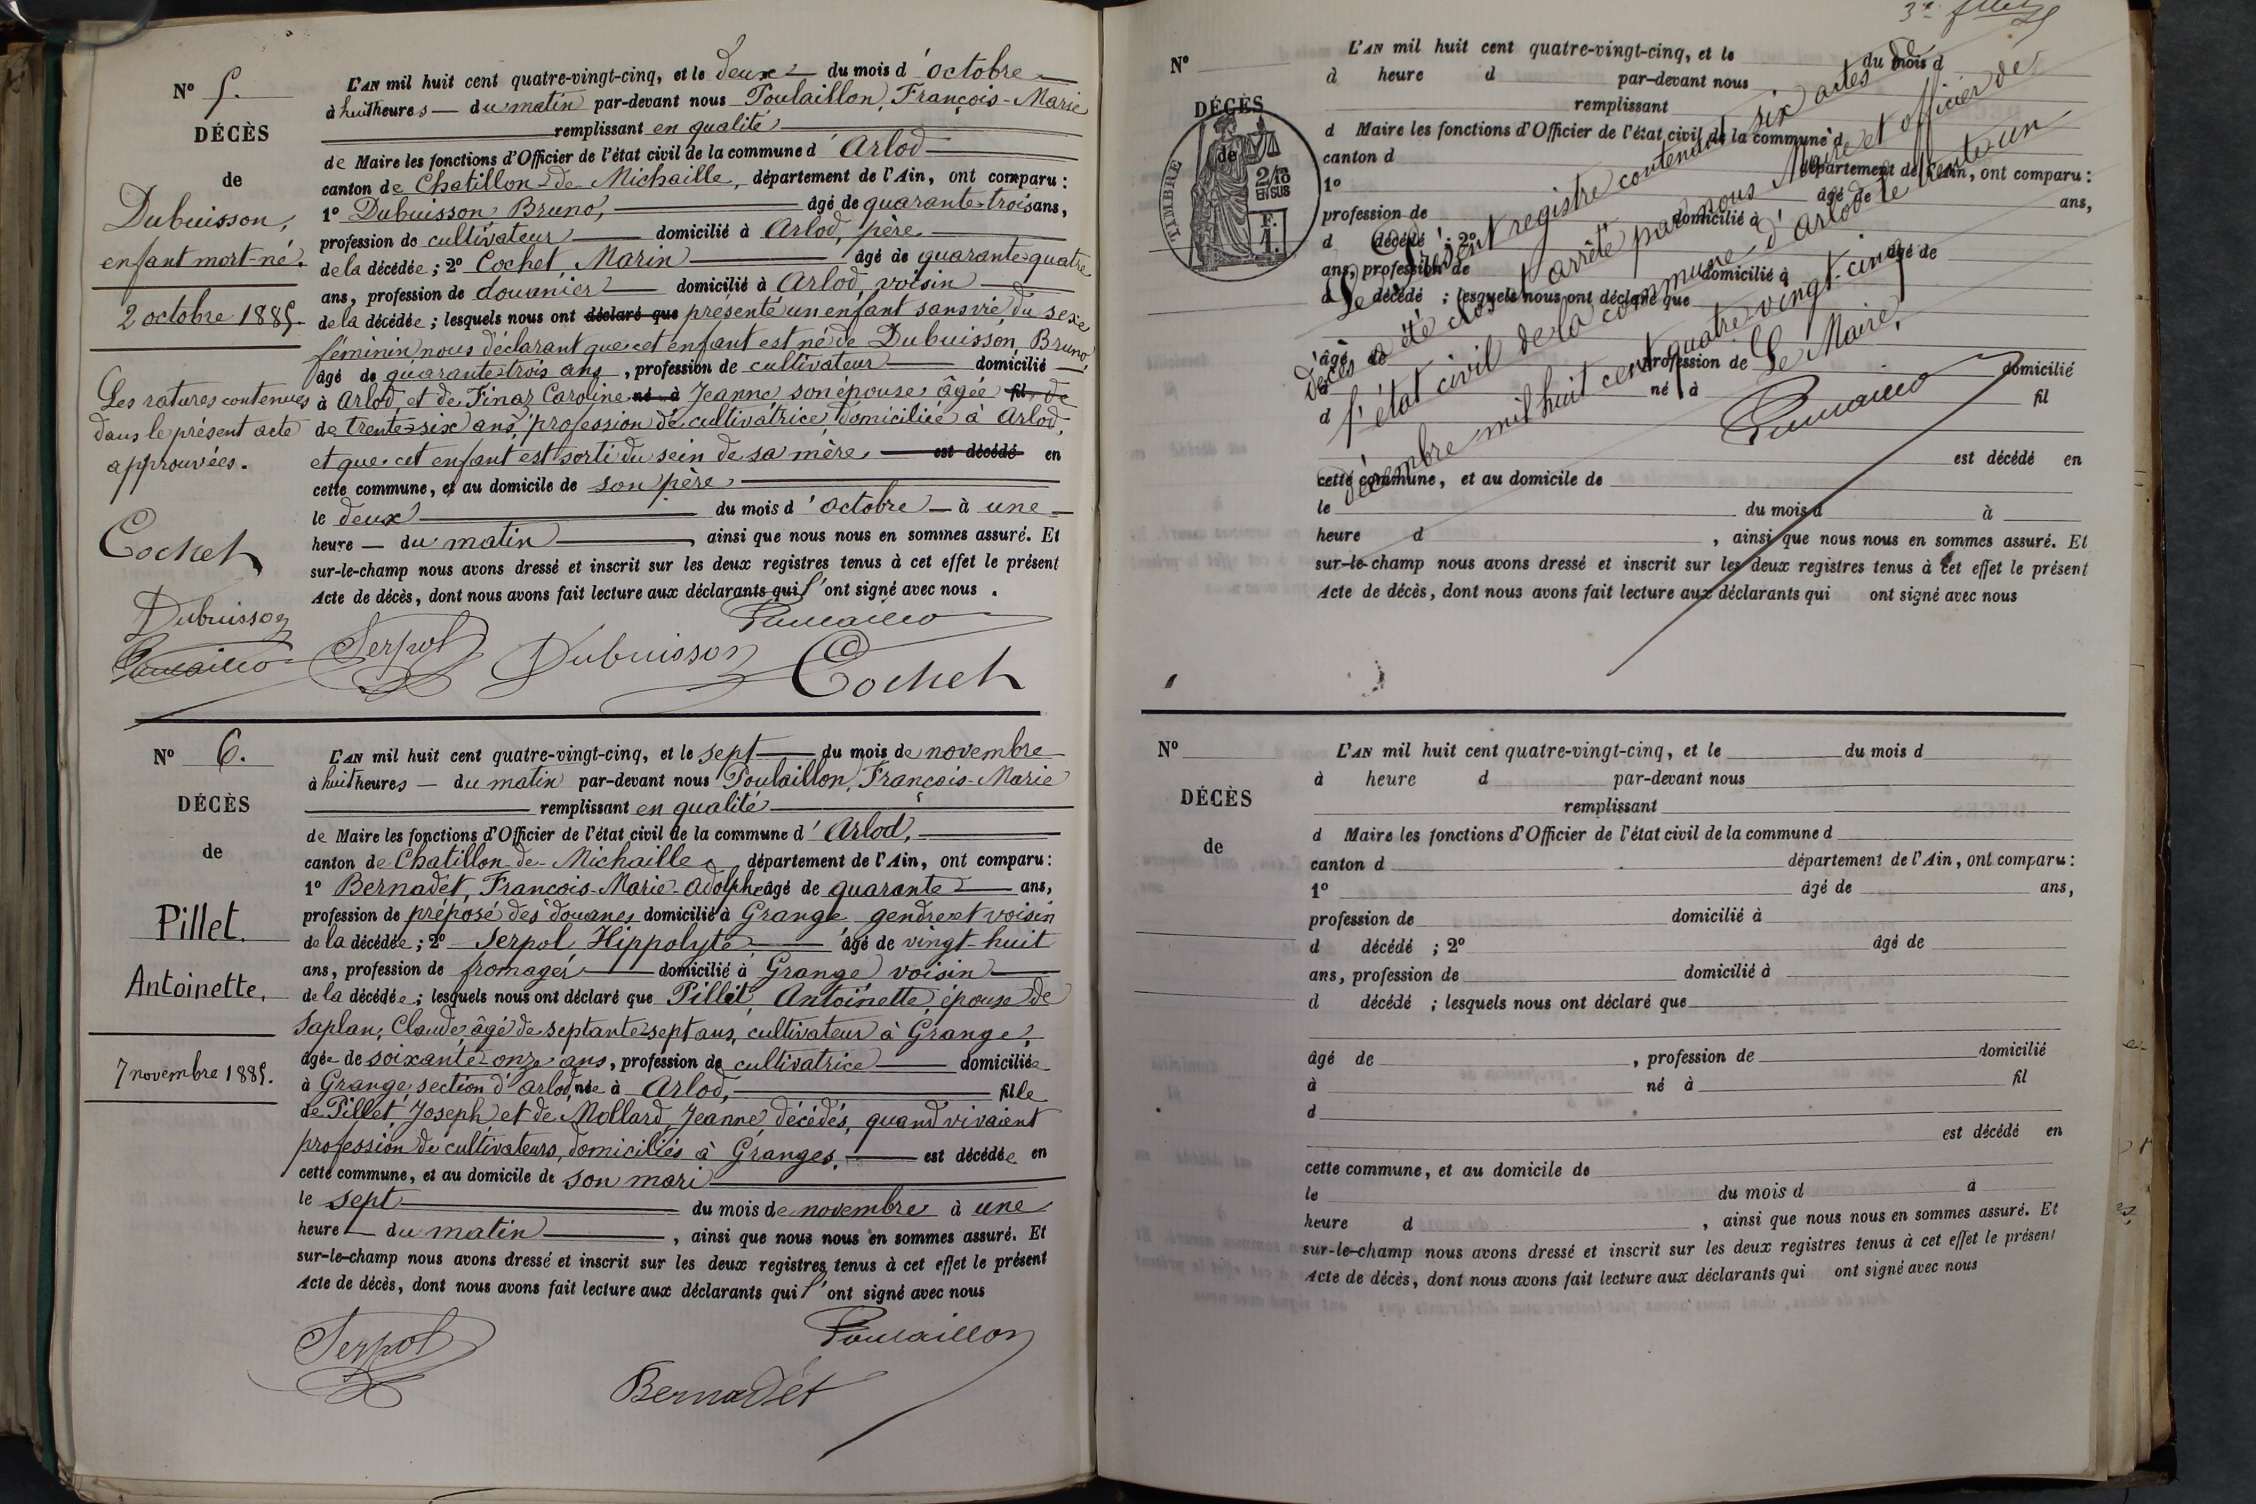 N° 5.
DÉCÈS
de
Dubuisson,
enfant mort-né.
2 octobre 1885.
Les ratures contenues
dans le présent acte
approuvées.
Cochet
Dubuisson
Poulaillon
L'AN mil huit cent quatre-vingt-cinq, et le deux du mois d'octobre
à huit heures du matin par-devant nous Poulaillon, François-Marie
remplissant en qualité
de Maire les fonctions d'Officier de l'état civil de la commune d'Arlod
canton de Chatillon-de-Michaille, département de l'Ain, ont comparu :
1° Dubuisson Bruno, âgé de quarante-trois ans,
profession de cultivateur domicilié à Arlod, père
de la décédée ; 2° Cochet Marin âgé de quarante-quatre
ans, profession de douanier domicilié à Arlod, voisin
de la décédée ; lesquels nous ont déclaré que présenté un enfant sans vie du sexe
féminin nous déclarant que cet enfant est né de Dubuisson, Bruno,
âgé de quarante-trois ans, profession de cultivateur domicilié
à Arlod, et de Finaz Caroline né à Jeanne son épouse âgée fil de
de trente-six ans profession de cultivatrice domiciliée à Arlod,
et que cet enfant est sorti du sein de sa mère est décédé en
cette commune, et au domicile de son père
le deux du mois d'octobre à une
heure du matin, ainsi que nous nous en sommes assuré. Et
sur-le-champ nous avons dressé et inscrit sur les deux registres tenus à cet effet le présent
Acte de décès, dont nous avons fait lecture aux déclarants qui l'ont signé avec nous.
Poulaillon
Serpol Dubuisson Cochet
N° 6.
DÉCÈS
de
Pillet
Antoinette.
7 novembre 1885.
L'AN mil huit cent quatre-vingt-cinq, et le sept du mois de novembre
à huit heures du matin par-devant nous Poulaillon, François-Marie
remplissant en qualité
de Maire les fonctions d'Officier de l'état civil de la commune d'Arlod,
canton de Chatillon-de-Michaille, département de l'Ain, ont comparu :
1° Bernadet, François-Marie-Adolphe âgé de quarante ans,
profession de préposé des douanes domicilié à Grange gendre et voisin
de la décédée ; 2° Serpol Hippolyte âgé de vingt-huit
ans, profession de fromager domicilié à Grange voisin
de la décédée ; lesquels nous ont déclaré que Pillet, Antoinette, épouse de
Saplan, Claude, âgé de septante-sept ans, cultivateur à Grange,
âgée de soixante-onze ans, profession de cultivatrice domiciliée
à Grange section d'Arlod, née à Arlod, fille
de Pillet, Joseph et de Mollard, Jeanne, décédés, quand vivaient
profession de cultivateurs, domiciliés à Granges, est décédée en
cette commune, et au domicile de son mari
le sept du mois de novembre à une
heure du matin, ainsi que nous nous en sommes assuré. Et
sur-le-champ nous avons dressé et inscrit sur les deux registres tenus à cet effet le présent
Acte de décès, dont nous avons fait lecture aux déclarants qui l'ont signé avec nous
Serpol Poulaillon
Bernadet
N°
DÉCÈS
de
TIMBRE
2/10
EN SUS
F.
1.
L'AN mil huit cent quatre-vingt-cinq, et le du mois d
à heure d par-devant nous
remplissant
d Maire les fonctions d'Officier de l'état civil de la commune d
canton d département de l'Ain, ont comparu :
1° âgé de ans,
profession de domicilié à
d décédé ; 2° âgé de
ans, profession de domicilié à
d décédé ; lesquels nous ont déclaré que
âgé de profession de domicilié
à né à fil
d
est décédé en
cette commune, et au domicile de
le du mois d à
heure d , ainsi que nous nous en sommes assuré. Et
sur-le-champ nous avons dressé et inscrit sur les deux registres tenus à cet effet le présent
Acte de décès, dont nous avons fait lecture aux déclarants qui ont signé avec nous
Le présent registre contenant six actes de
décès a été clos et arrêté par nous Maire et officier de
l'état civil de la commune d'Arlod le trente un
décembre mil huit cent quatre-vingt-cinq
Le Maire,
Poulaillon
N°
DÉCÈS
de
L'AN mil huit cent quatre-vingt-cinq, et le du mois d
à heure d par-devant nous
remplissant
d Maire les fonctions d'Officier de l'état civil de la commune d
canton d département de l'Ain, ont comparu :
1° âgé de ans,
profession de domicilié à
d décédé ; 2° âgé de
ans, profession de domicilié à
d décédé ; lesquels nous ont déclaré que
âgé de , profession de domicilié
à né à fil
d
est décédé en
cette commune, et au domicile de
le du mois d à
heure d , ainsi que nous nous en sommes assuré. Et
sur-le-champ nous avons dressé et inscrit sur les deux registres tenus à cet effet le présent
Acte de décès, dont nous avons fait lecture aux déclarants qui ont signé avec nous